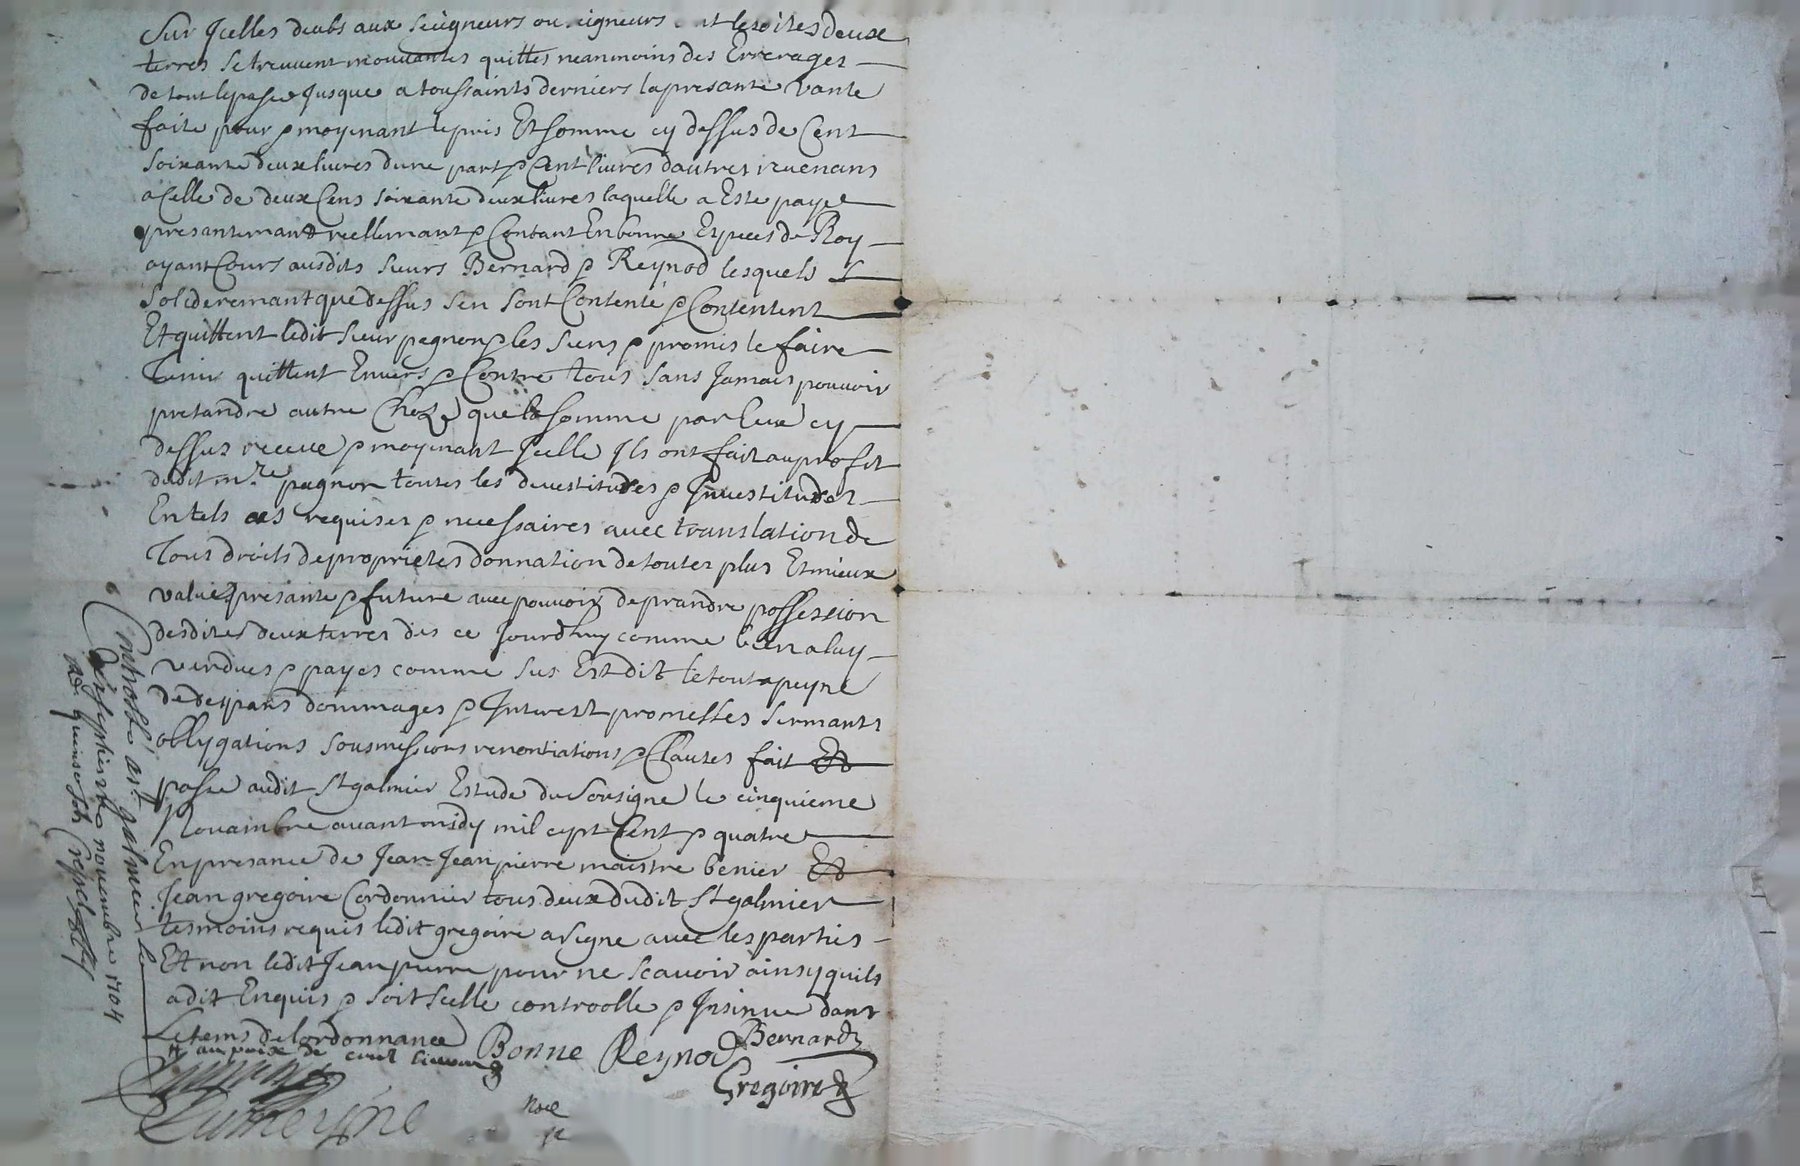 Sur Jcelles deubs aux seigneurs ou seigneurs dont lesdites deux
terres se treuvent mouvantes quittes neanmoins des Errerages
de tout le passe Jusque a toussaints derniers la presante vante
faite pour & moyenant le pris Et somme cy dessus de Cent
soixante deux livres dune part & Cent livres dautres revenans
a Celle de deux Cens soixante deux livres laquelle a Este payee
presantemant reellemant & Contant En bonne Especes de Roy
ayant Cours ausdits sieurs Bernard & Reynod lesquels
solideremant que dessus sen sont Contente & Contentent
Et quittent ledit sieur pagnon & les siens & promis le faire
Tenir quittent Envers & Contre tous sans Jamais pouvoir
pretandre autre Choze que la somme par Eux cy
dessus receue & moyenant Jcelle Jls ont fait au profit
dudit mre pagnon toutes les devestitudes & Jnvestitudes
En tels cas requises & necessaires avec translation de
Tous droits de proprietes donnation de toutes plus Et mieux
values presante & future avec pouvoir de prandre possession
desdites deux terres des ce Jourdhuy comme bien a luy
vendues & payes comme sus Est dit le tout a peyne
de despans dommages & Interest promesses sermants
obllygations sousmissions renontiations & Clauses fait Et
passe audit St galmier Estude du sousigne le cinquieme
Novambre avant midy mil cept Cent & quatre
En presance de Jean Jeanpierre maistre benier Et
Jean gregoire Cordonnier tous deux dudit St galmier
tesmoins requis ledit gregoire a signe avec les parties
Et non ledit Jeanpierre pour ne scavoir ainsy quils
a dit Enquis & soit scelle controolle & Insinue dans
Le tems de lordonnance
Bonne Reynod Bernard
Gregoire
Controlle a St galmier le
novembre 1704